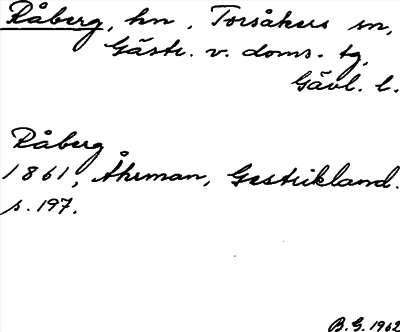 Råberg, hn, Torsåkers sn,
Gästr. v. doms. tg,
Gävl. l.
Råberg
1861, Åhrman, Gestrikland.
s. 197.
B.G. 1962